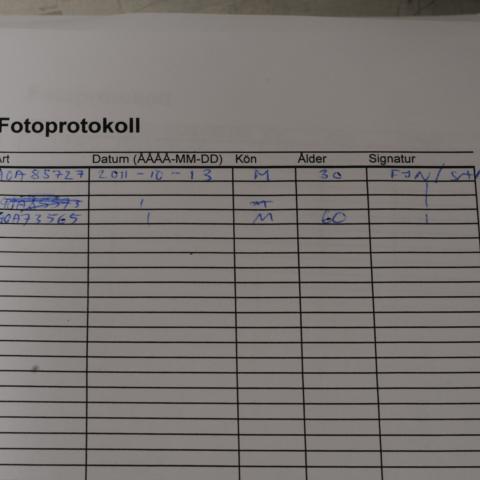 Fotoprotokoll
Art Datum (ÅÅÅÅ-MM-DD) Kön Ålder Signatur
A0A85727 2011-10-13 M 30 FJN/
M
A0A73565 M 60